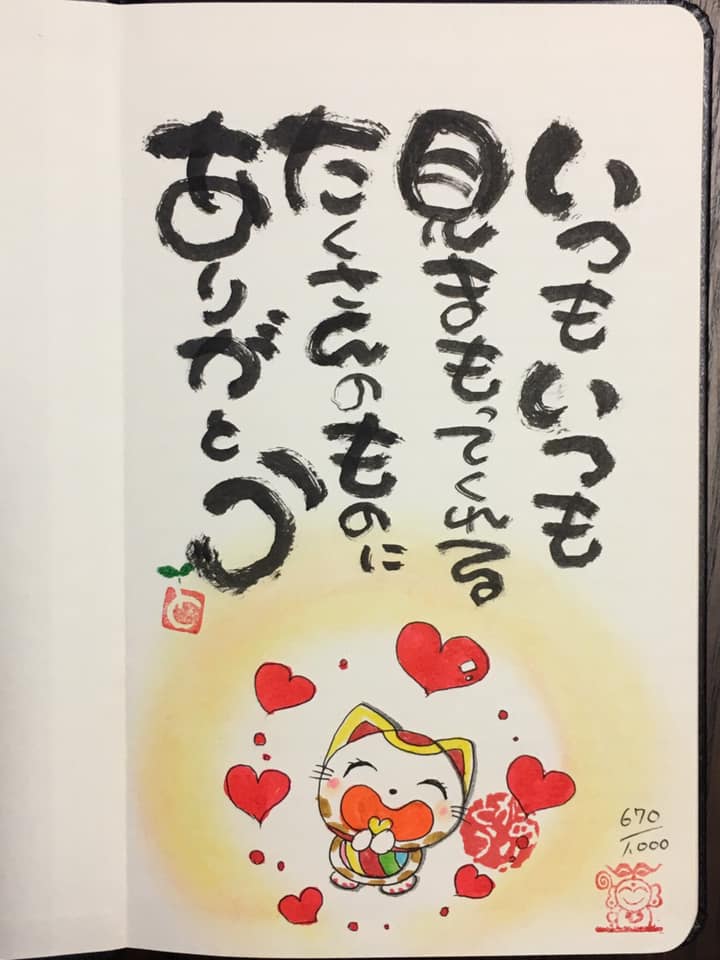 いつもいつも
見まもってくれる
たくさんのものに
ありがとう
670/1,000